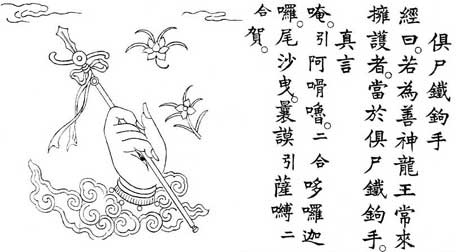 俱尸鐵鉤手
經曰。若為善神龍王常來
擁護者。當於俱尸鐵鉤手。
真言
唵。引阿嗗嚕。二合哆囉迦
囉。尾沙曳。曩謨引薩嚩二
合賀。